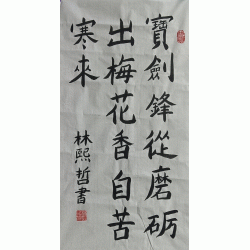 寶劍鋒從磨砺
出梅花香自苦
寒來
林熙哲書